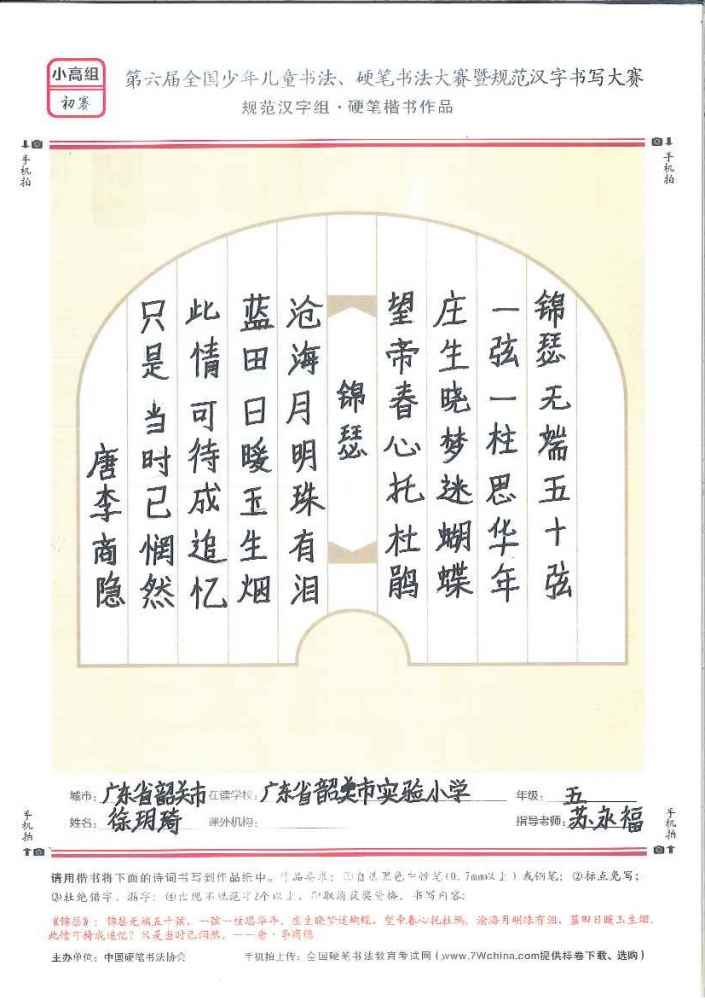 小高组
初赛
第六届全国少年儿童书法、硬笔书法大赛暨规范汉字书写大赛
规范汉字组·硬笔楷书作品
手机拍
手机拍
锦瑟无端五十弦
一弦一柱思华年
庄生晓梦迷蝴蝶
望帝春心托杜鹃
锦瑟
沧海月明珠有泪
蓝田日暖玉生烟
此情可待成追忆
只是当时已惘然
唐李商隐
城市：广东省韶关市 在读学校：广东省韶关市实验小学 年级：五
姓名：徐玥琦 课外机构： 指导老师：苏永福
手机拍
手机拍
请用楷书将下面的诗词书写到作品纸中。作品要求：①自选黑色中性笔(0.7mm以上)或钢笔；②标点免写；
③杜绝错字、漏字；④出现不规范字2个以上，即取消获奖资格。书写内容：
《锦瑟》：锦瑟无端五十弦，一弦一柱思华年。庄生晓梦迷蝴蝶，望帝春心托杜鹃。沧海月明珠有泪，蓝田日暖玉生烟。
此情可待成追忆？只是当时已惘然。——唐·李商隐
主办单位：中国硬笔书法协会 手机拍上传：全国硬笔书法教育考试网（www.7Wchina.com提供样卷下载、选购）